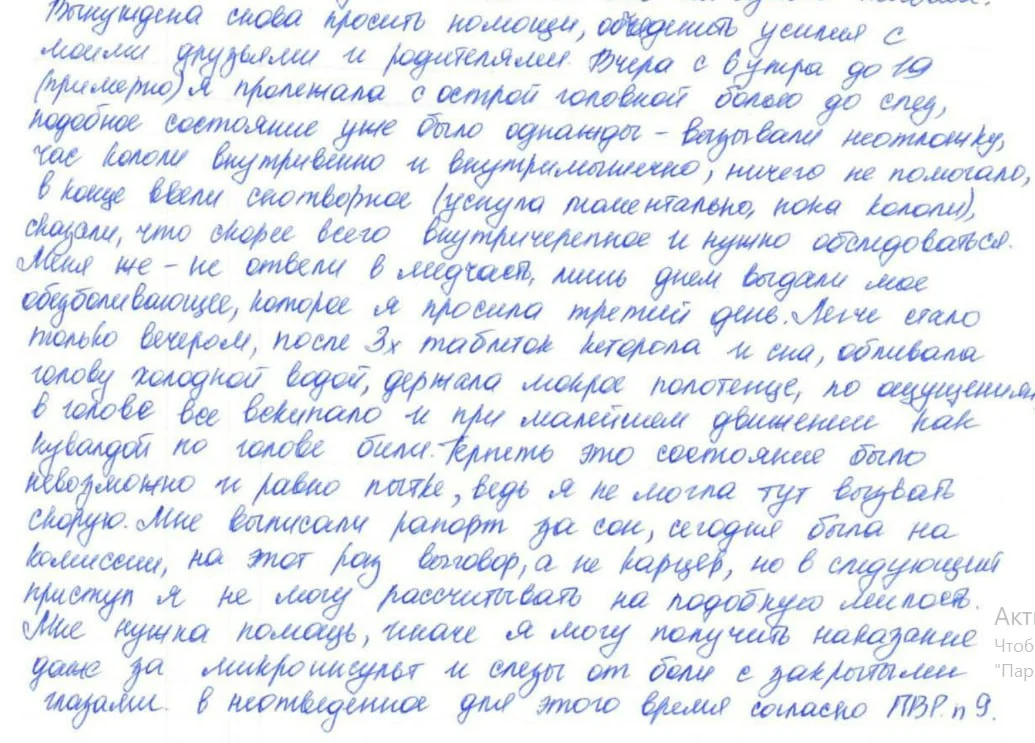 Вынуждена снова просить помощи, объеденить усилия с
моими друзьями и родителями. Вчера с 6 утра до 19
(примерно) я пролежала с острой головной болью до слез,
подобное состояние уже было однажды – вызывали неотложку,
час кололи внутривенно и внутримышечно, ничего не помогало,
в конце ввели снотворное (уснула моментально, пока кололи),
сказали, что скорее всего внутричерепное и нужно обследоваться.
Меня же – не отвели в медчасть, лишь днем выдали мое
обезболивающее, которое я просила третий день. Легче стало
только вечером, после 3х таблеток кеторола и сна, обливала
голову холодной водой, держала мокрое полотенце, по ощущениям
в голове все вскипало и при малейшем движении как
кувалдой по голове били. Терпеть это состояние было
невозможно и равно пытке, ведь я не могла тут вызвать
скорую. Мне выписали рапорт за сон, сегодня была на
комиссии, на этот раз выговор, а не карцер, но в следующий
приступ я не могу рассчитывать на подобную милость.
Мне нужна помощь, иначе я могу получить наказание
даже за микроинсульт и слезы от боли с закрытыми
глазами. в неотведенное для этого время согласно ПВР. п 9.
Акти
Чтоб
"Пар